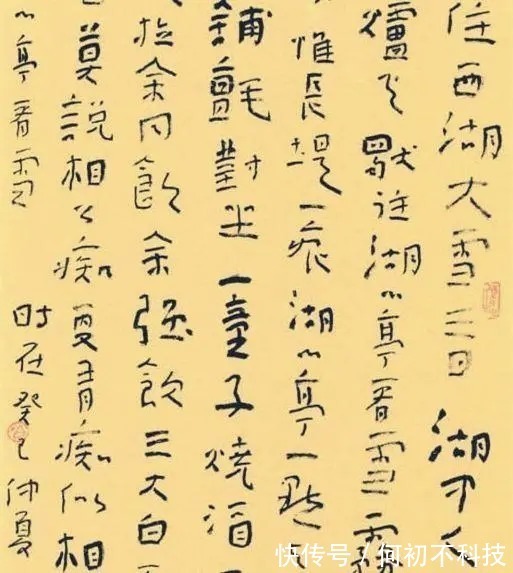 住西湖大雪三日湖中
爐火獨往湖心亭看雪霧
惟長堤一痕湖心亭一點
鋪氈對坐一童子燒酒
拉余同飲余強飲三大白
莫說相公痴更有痴似相
心亭看雪 时在癸巳仲夏
快传号/何初不科技